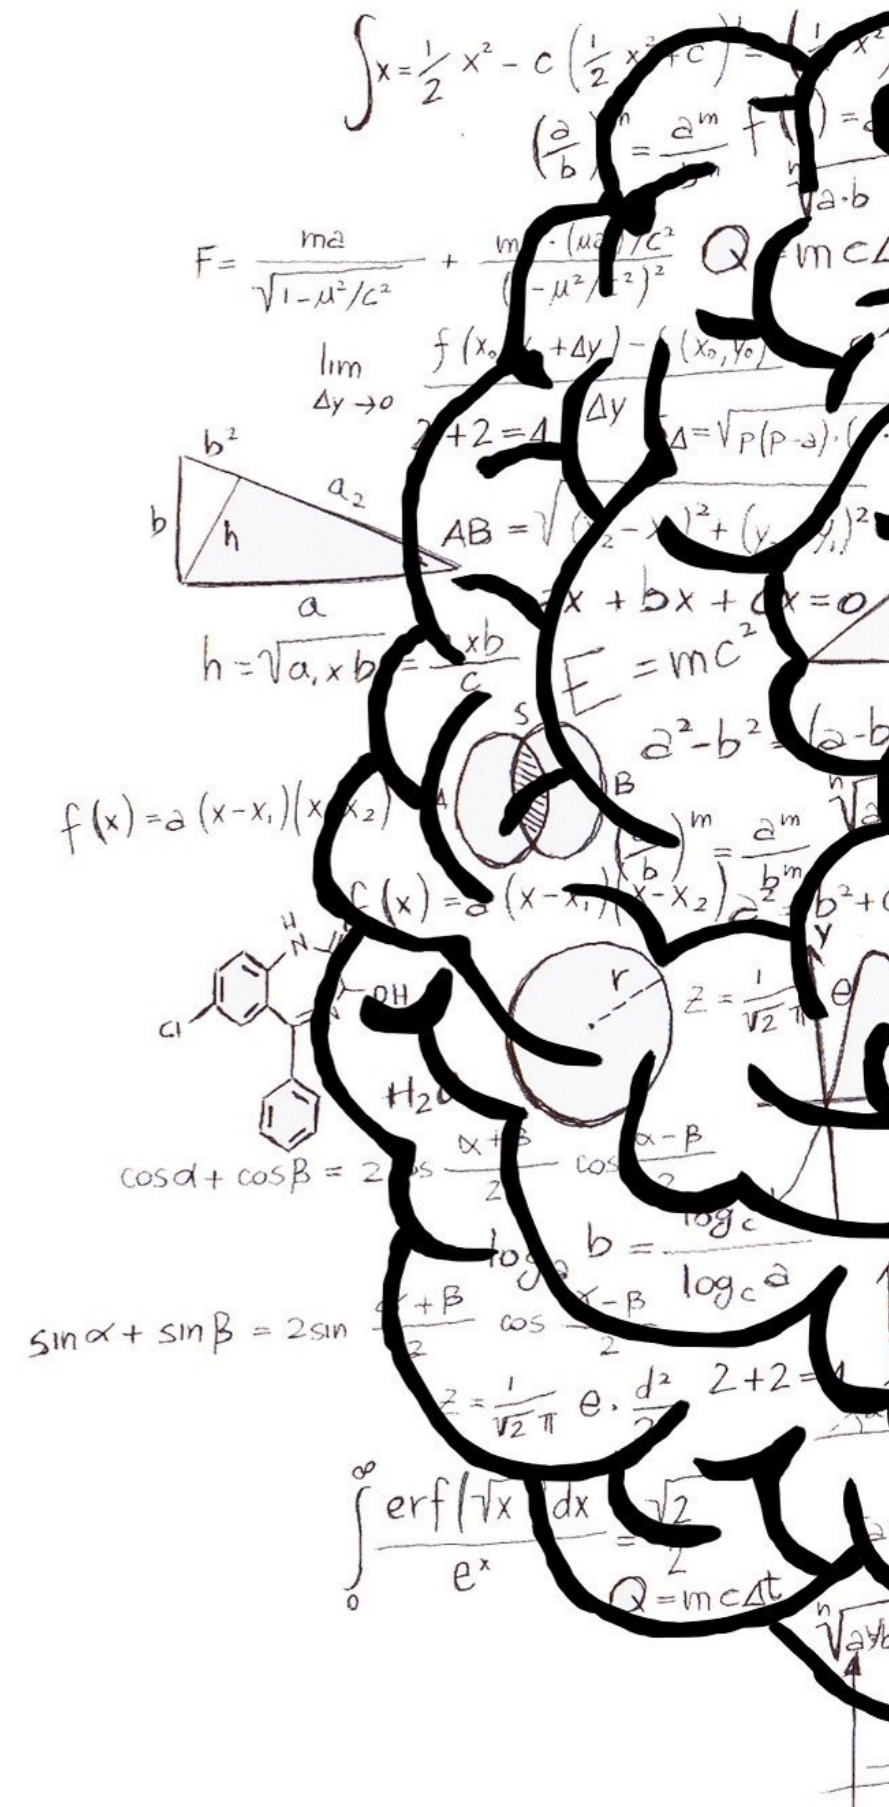 ∫x = 1/2 x² - c (1/2 x² + c)
(a/b)ⁿ = aᵐ
√a·b
F = ma/√1-μ²/c² + m · (μa)/c²/( -μ²/c²)²
Q mc
lim Δy→0 f(x₀ +Δy) - (x₀,y₀)/Δy
2+2=4
Δ=√p(p-a)·(
b²
a₂
b
h
a
AB = √( ₂- x )²+(y y₁)²
x + bx + x=0
h = √a₁xb = xb/c
E = mc²
S
B
a²-b² (a-b
f(x) = a (x-x₁)(x x₂)
( /b)ᵐ = aᵐ/bᵐ
f(x) = a (x-x₁)(x-x₂)
a² b²+
y
H
N
OH
Cl
r
z = 1/√2 π
e
H₂O
cosα + cosβ = 2 os α+β/2 cos α-β/2
logₐ b = log_c/log_c a
sinα + sinβ = 2sin +β/2 cos -β/2
z = 1/√2 π e · d²/2
2+2=4
∫₀^∞ erf(√x dx/eˣ = √2/2
Q = mcΔt
ⁿ√a b